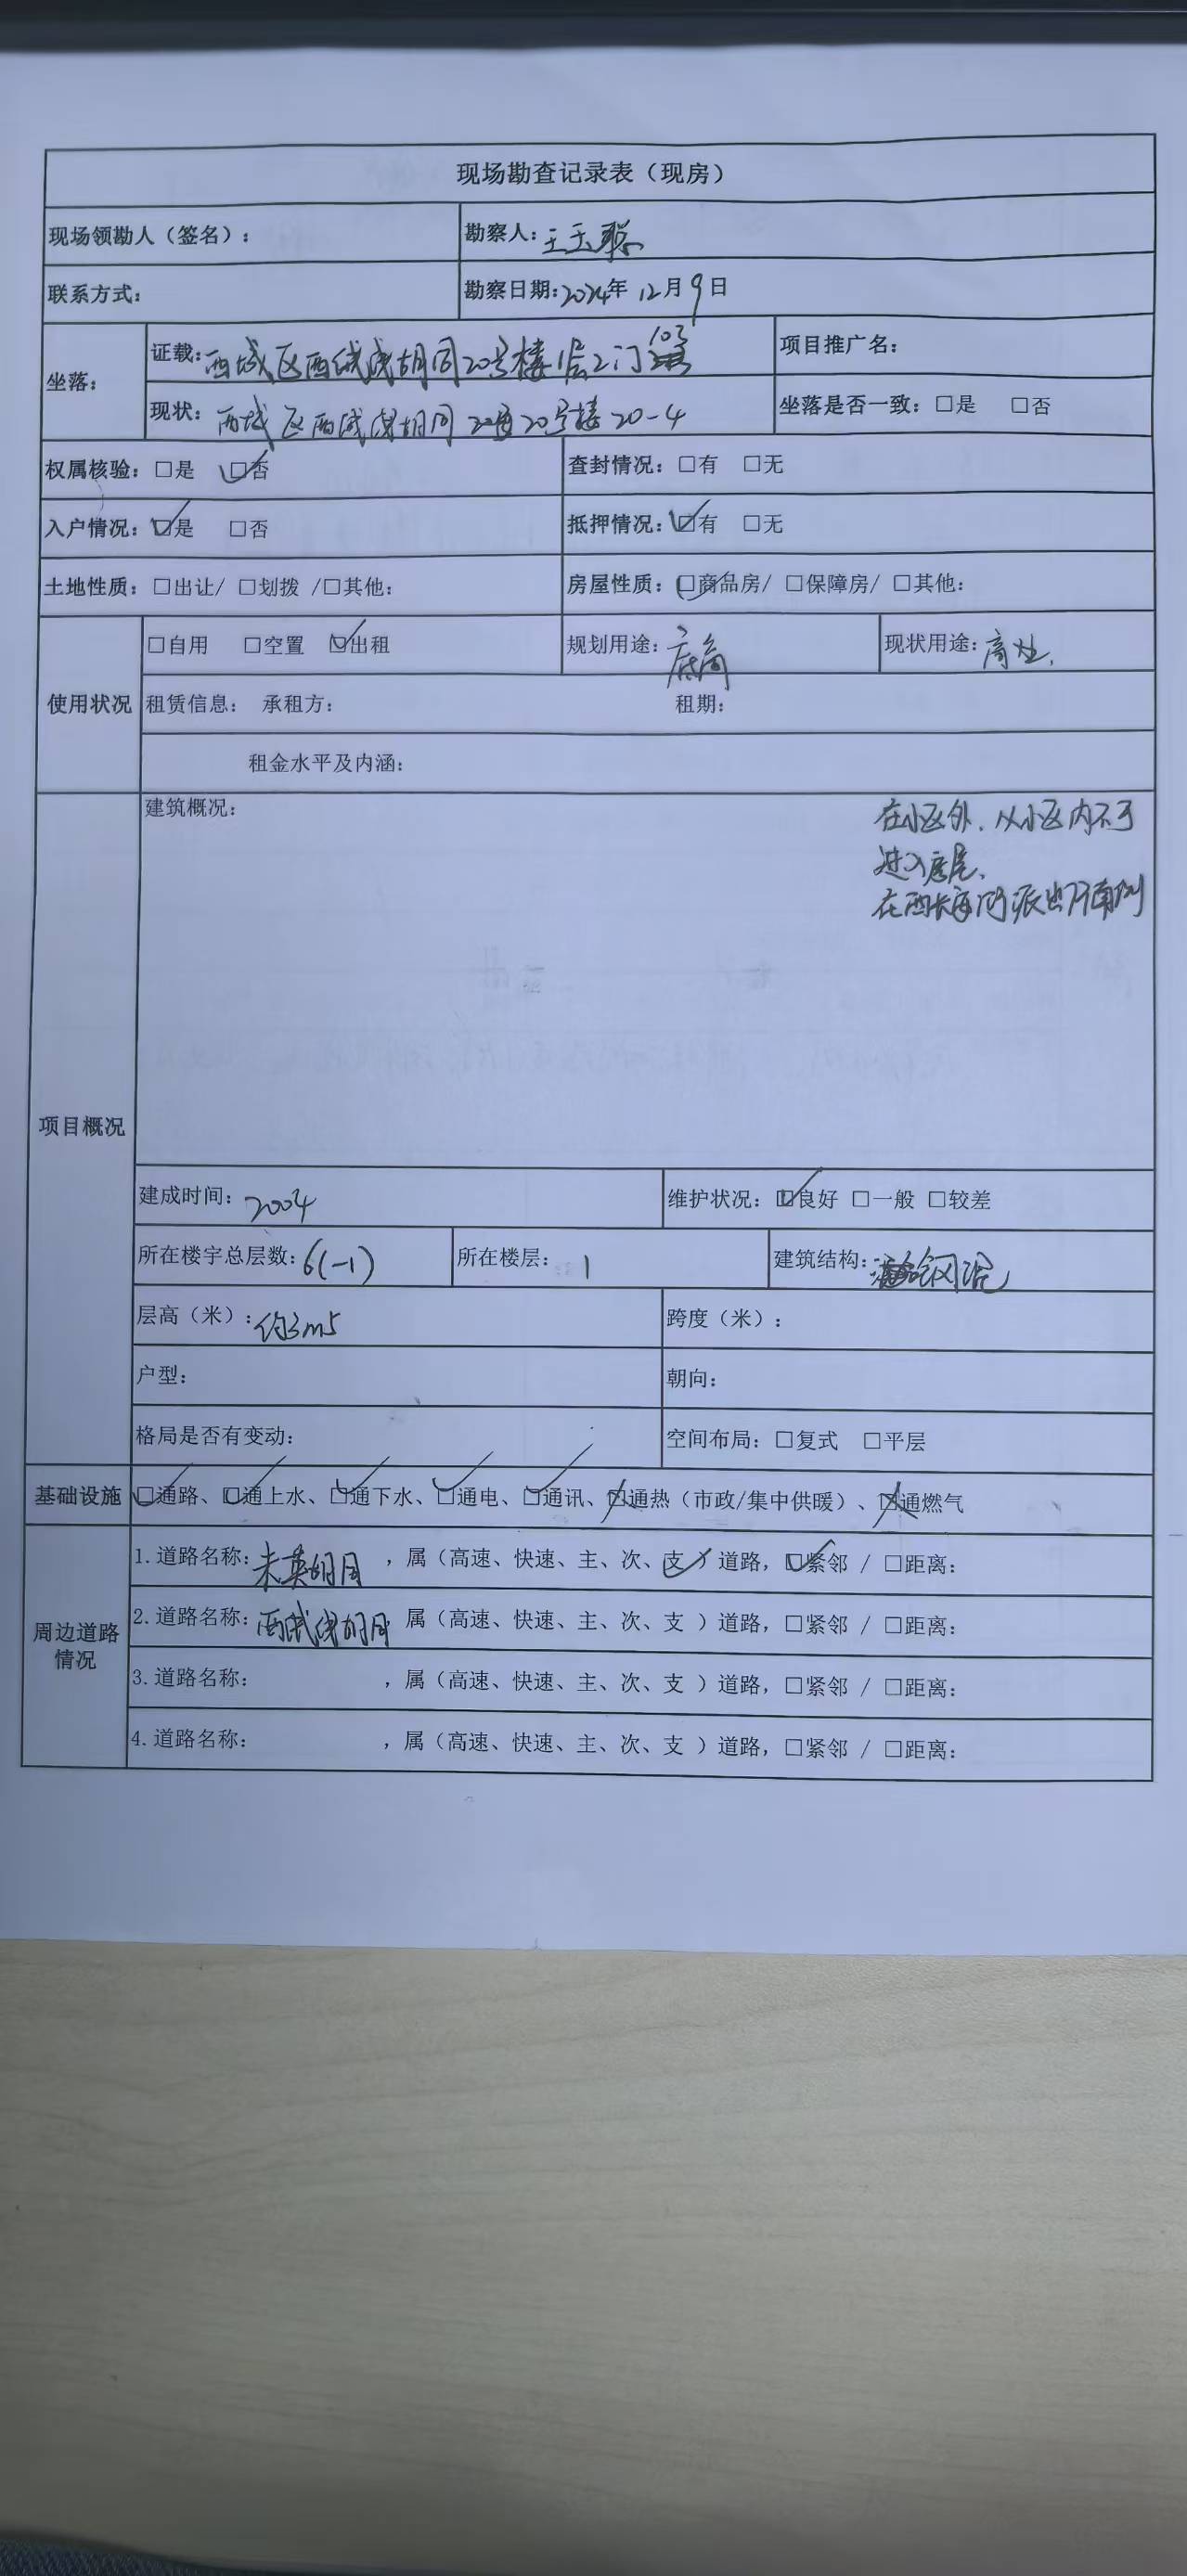 现场勘查记录表（现房）
现场领勘人（签名）： 勘察人：王玉聪
联系方式： 勘察日期：2024年 12月 9日
坐落： 证载：西城区西绒线胡同20号楼1层2门103 项目推广名：
现状：西城区西绒线胡同20号楼 20-4 坐落是否一致：□是 □否
权属核验：□是 ☑否 查封情况：□有 □无
入户情况：☑是 □否 抵押情况：☑有 □无
土地性质：□出让/ □划拨 /□其他： 房屋性质：☑商品房/ □保障房/ □其他：
使用状况 □自用 □空置 ☑出租 规划用途：底商 现状用途：商业
租赁信息： 承租方： 租期：
租金水平及内涵：
项目概况 建筑概况：
在小区外，从小区内不可
进入房屋。
在西长安街派出所南侧
建成时间：2004 维护状况：☑良好 □一般 □较差
所在楼宇总层数：6(-1) 所在楼层：1 建筑结构：钢混
层高（米）：约3m5 跨度（米）：
户型： 朝向：
格局是否有变动： 空间布局：□复式 □平层
基础设施 ☑通路、☑通上水、☑通下水、☑通电、☑通讯、☒通热（市政/集中供暖）、☒通燃气
周边道路情况 1.道路名称：未英胡同 ，属（高速、快速、主、次、支 ）道路，☑紧邻 / □距离：
2.道路名称：西绒线胡同 属（高速、快速、主、次、支 ）道路，□紧邻 / □距离：
3.道路名称： ，属（高速、快速、主、次、支 ）道路，□紧邻 / □距离：
4.道路名称： ，属（高速、快速、主、次、支 ）道路，□紧邻 / □距离：